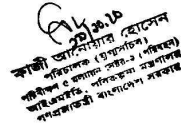 ২০/১০/১০
কাজী আনোয়ার হোসেন
পরিচালক (যুগ্মসচিব)
পরিবীক্ষণ ও মূল্যায়ন সেক্টর-২ (পরিবহন)
আইএমইডি, পরিকল্পনা মন্ত্রণালয়
গণপ্রজাতন্ত্রী বাংলাদেশ সরকার